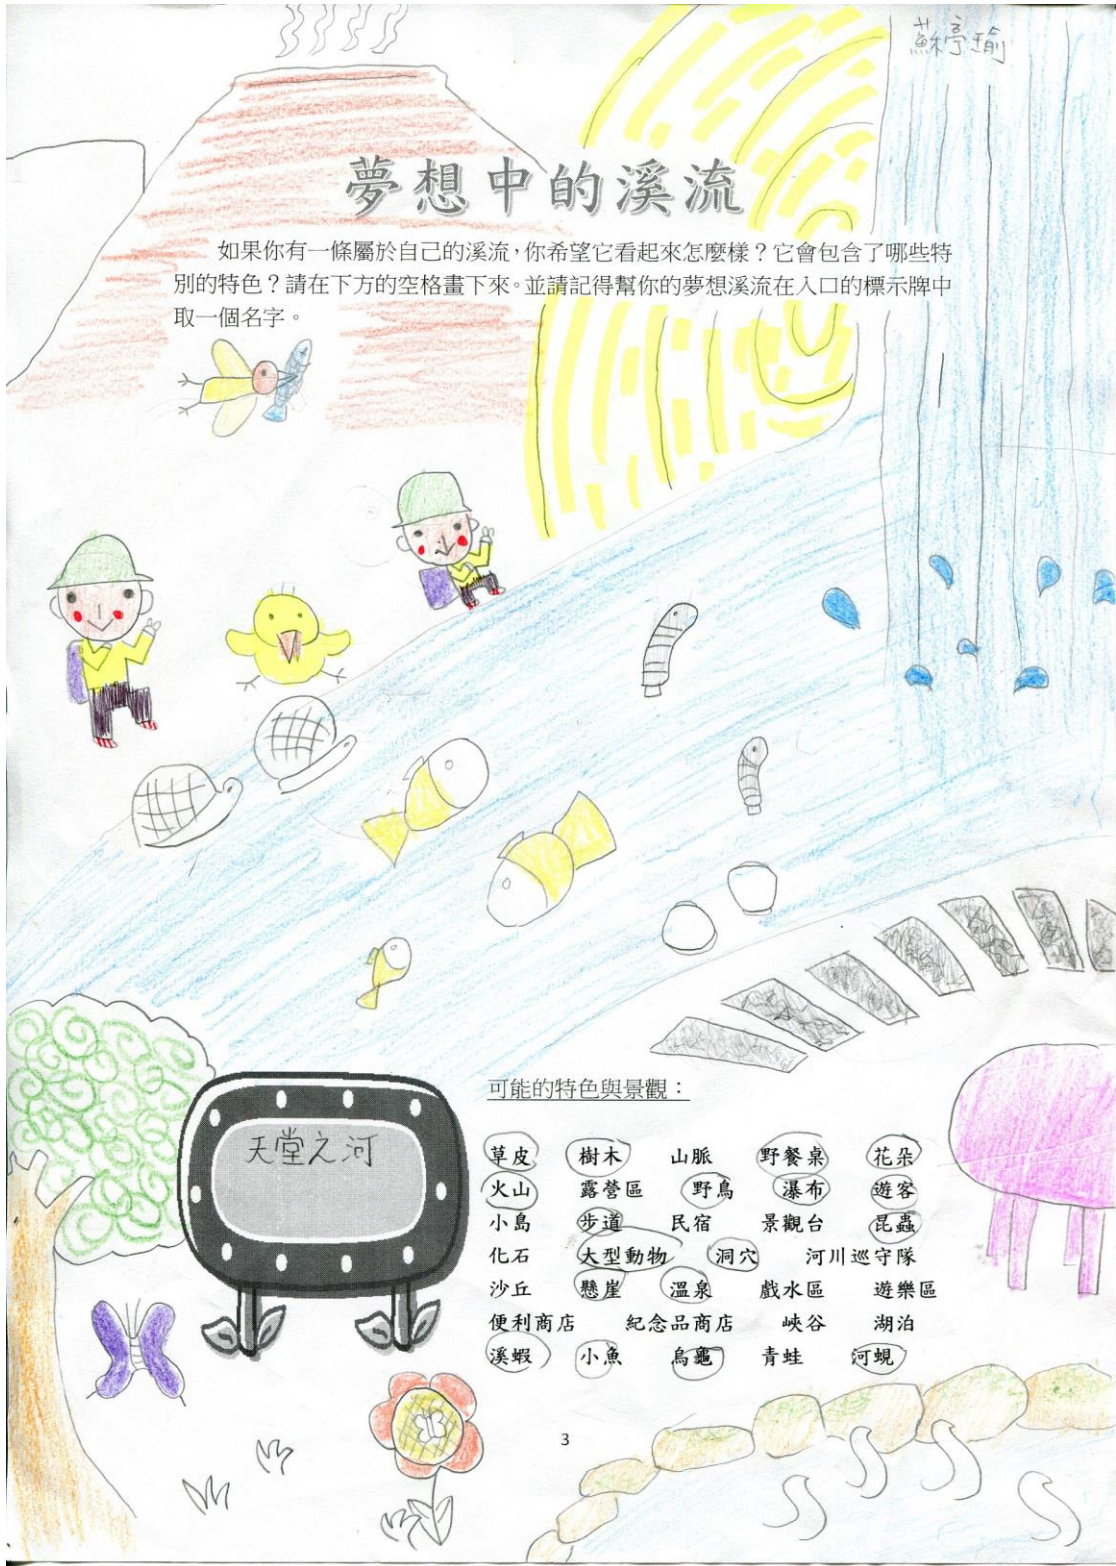 蘇亭瑜
夢想中的溪流
如果你有一條屬於自己的溪流，你希望它看起來怎麼樣？它會包含了哪些特
別的特色？請在下方的空格畫下來。並請記得幫你的夢想溪流在入口的標示牌中
取一個名字。
天堂之河
可能的特色與景觀：
草皮 樹木 山脈 野餐桌 花朵
火山 露營區 野鳥 瀑布 遊客
小島 步道 民宿 景觀台 昆蟲
化石 大型動物 洞穴 河川巡守隊
沙丘 懸崖 溫泉 戲水區 遊樂區
便利商店 紀念品商店 峽谷 湖泊
溪蝦 小魚 烏龜 青蛙 河蜆
3